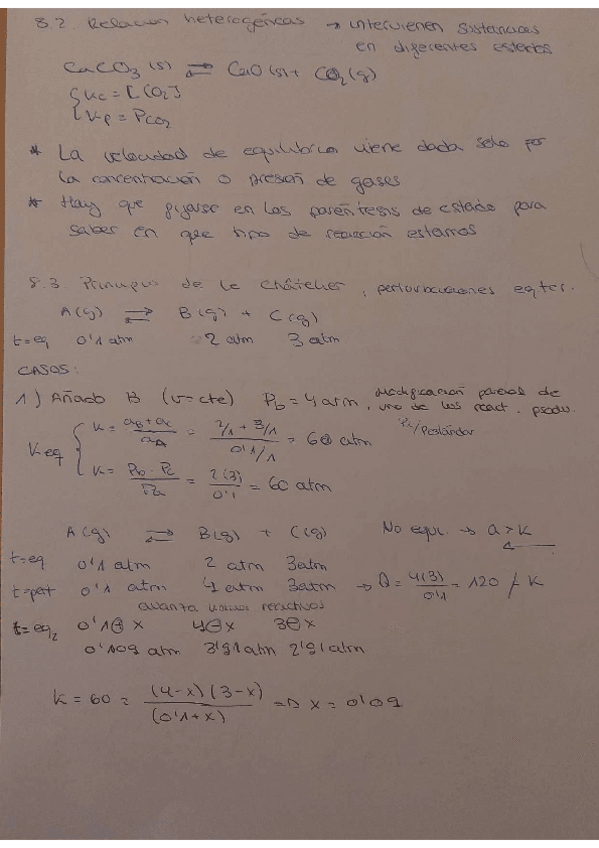 8.2. Relacion heterogéneas → intervienen sustancias
en diferentes estados
CaCO3 (s) ⇌ CaO (s) + CO2 (g)
{ Kc = [CO2]
{ Kp = PCO2
* La velocidad de equilibrio viene dada solo por
la concentración o presión de gases
* Hay que fijarse en los paréntesis de estado para
saber en que tipo de reacción estamos
8.3. Principio de le Châtelier, perturbaciones eqter.
A(g) ⇌ B(g) + C(g)
t=eq 0'1 atm 2 atm 3 atm
CASOS:
1) Añado B (v=cte) Pb = 4 atm, modificación parcial de
uno de los react. produ.
Keq { K = aB + aC / aA = 2/1 + 3/1 / 0'1/1 = 60 atm
{ K = Pb · Pc / Pa = 2(3) / 0'1 = 60 atm
A(g) ⇌ B(g) + C(g) No equi. → Q > K
←
t=eq 0'1 atm 2 atm 3 atm
t=pert 0'1 atm 4 atm 3 atm → Q = 4(3) / 0'1 = 120 ≠ K
avanza reactivos
t=eq2 0'1⊕ x 4⊖x 3⊖x
0'109 atm 3'91 atm 2'91 atm
K = 60 = (4-x)(3-x) / (0'1+x) => x = 0'09